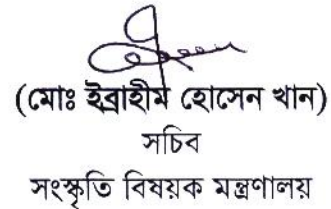 (মোঃ ইব্রাহীম হোসেন খান)
সচিব
সংস্কৃতি বিষয়ক মন্ত্রণালয়